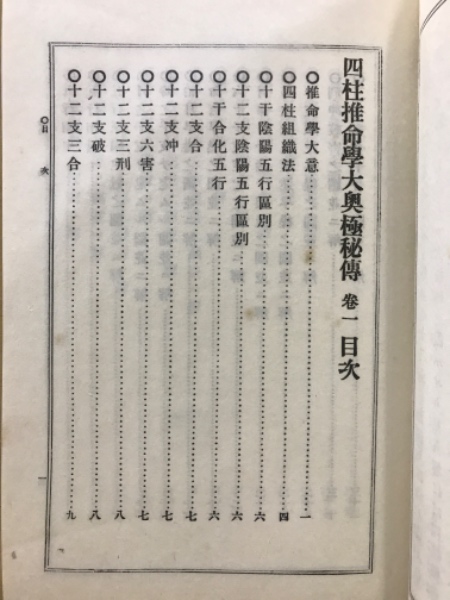 四柱推命學大奧極秘傳 卷一 目次
〇推命學大意……一
〇四柱組織法……四
〇十干陰陽五行區別……六
〇十二支陰陽五行區別……六
〇十干合化五行……六
〇十二支合……七
〇十二支冲……七
〇十二支六害……七
〇十二支三刑……八
〇十二支破……八
〇十二支三合……九
〇目次
一